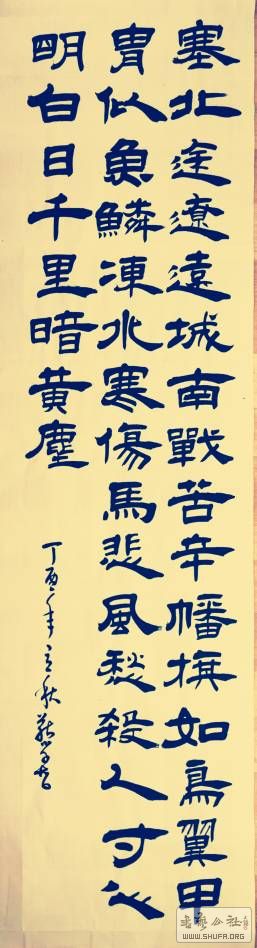 塞北途遼遠城南戰苦辛幡旗如鳥翼甲
胄似魚鱗凍水寒傷馬悲風愁殺人寸心
明白日千里暗黃塵
丁酉年立秋
书艺公社
WWW.SHUFA.ORG